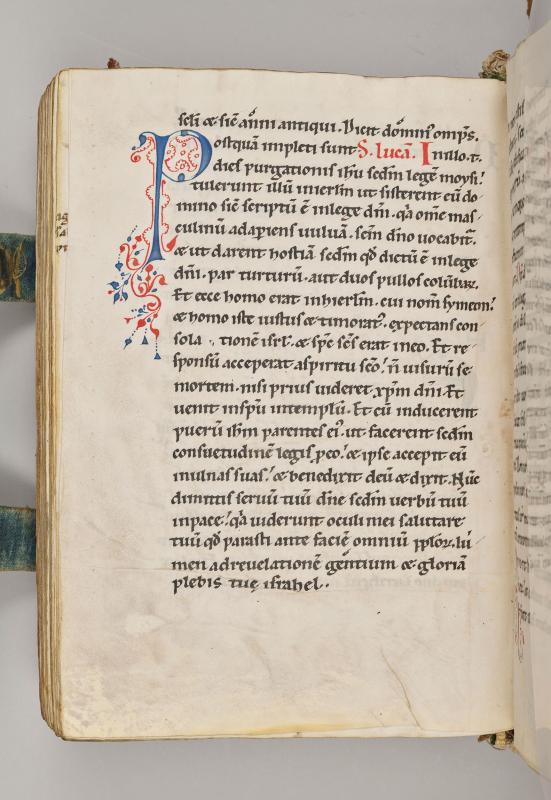 scłi ⁊ sic̄ anni antiqui. Dicit dom̄in' omp̄s.
Postquā impleti sunt S. lucā. In illo. t.
dies purgationis ihū sedm̄ legē moysi:
tulerunt illū inierlm̄ ut sisterent eū do-
mino sic̄ scriptū ē inlege dm̄i. qa om̄e mas-
culinū adapiens uuluā. scm̄ dn̄o uocabit̄.
⁊ ut darent hostiā sedm̄ qd̄ dictū ē inlege
dn̄i. par turturū. aut duos pullos colūbaꝝ.
Et ecce homo erat inhierlm̄. cui nom̄ symeon:
⁊ homo iste iustus ⁊ timorat'. expectans con
sola tionē isrl̄. ⁊ sp̄c sc̄s erat ineo. Et re-
sponsū acceperat aspiritu sc̄o: n̄ uisurū se
mortem. nisi prius uideret xp̄m dn̄i. Et
uenit insp̄u intemplū. Et cū inducerent
puerū ihm̄ parentes ei'. ut facerent sedm̄
consuetudinē legis p̱eo: ⁊ ipse accepit eū
inulnas suas: ⁊ benedixit deū ⁊ dixit. Nūc
dimittis seruū tuū dn̄e sedm̄ uerbū tuū
inpace: qa uiderunt oculi mei salutare
tuū qd̄ parasti ante faciē omniū pp̄loꝝ. lu-
men adreuelationē gentium ⁊ gloriā
plebis tuę israhel.